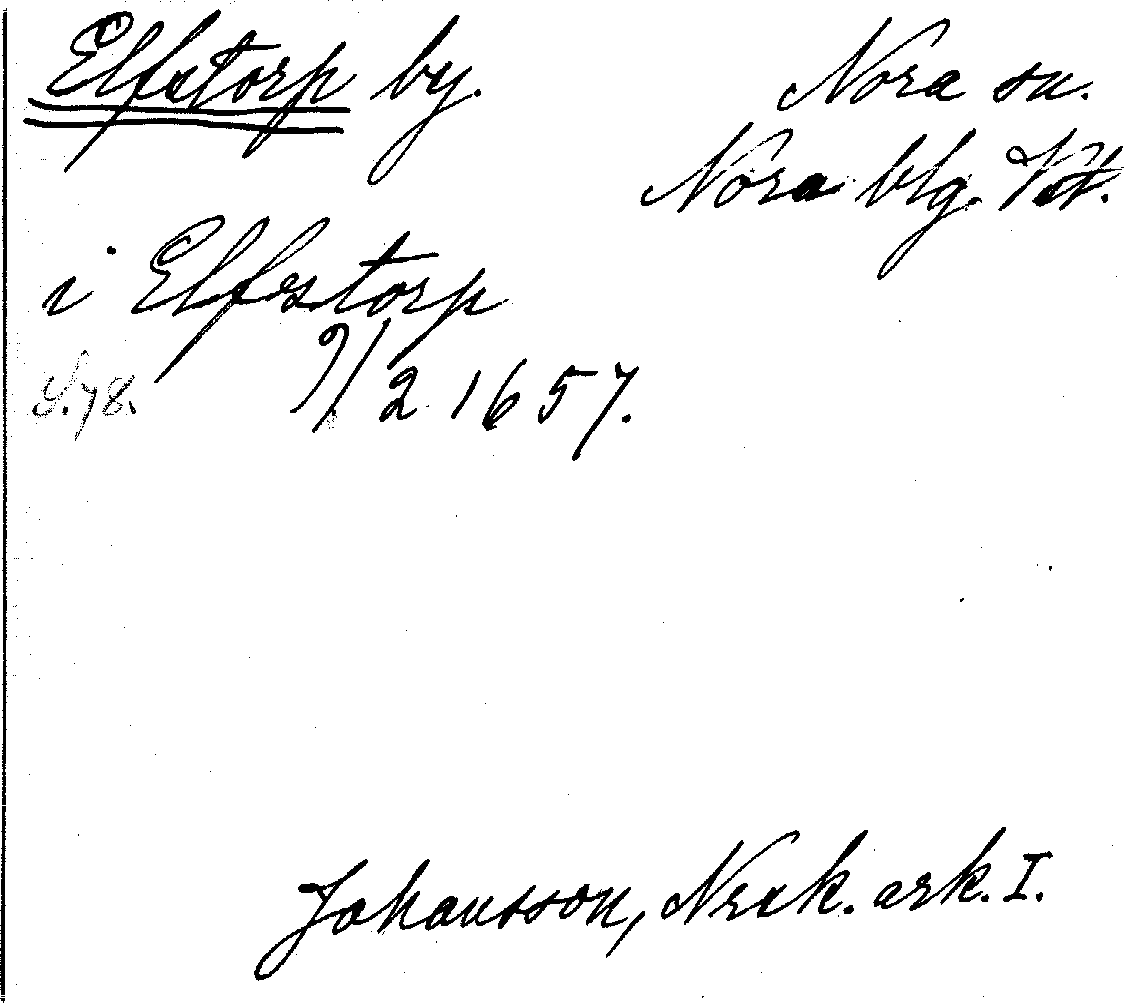 Elfstorp by.
Nora sn.
Nora blg. Vstm.
i Elfstorp
S. 78. 9/2 1657.
Johansson, Nrak. ark. I.